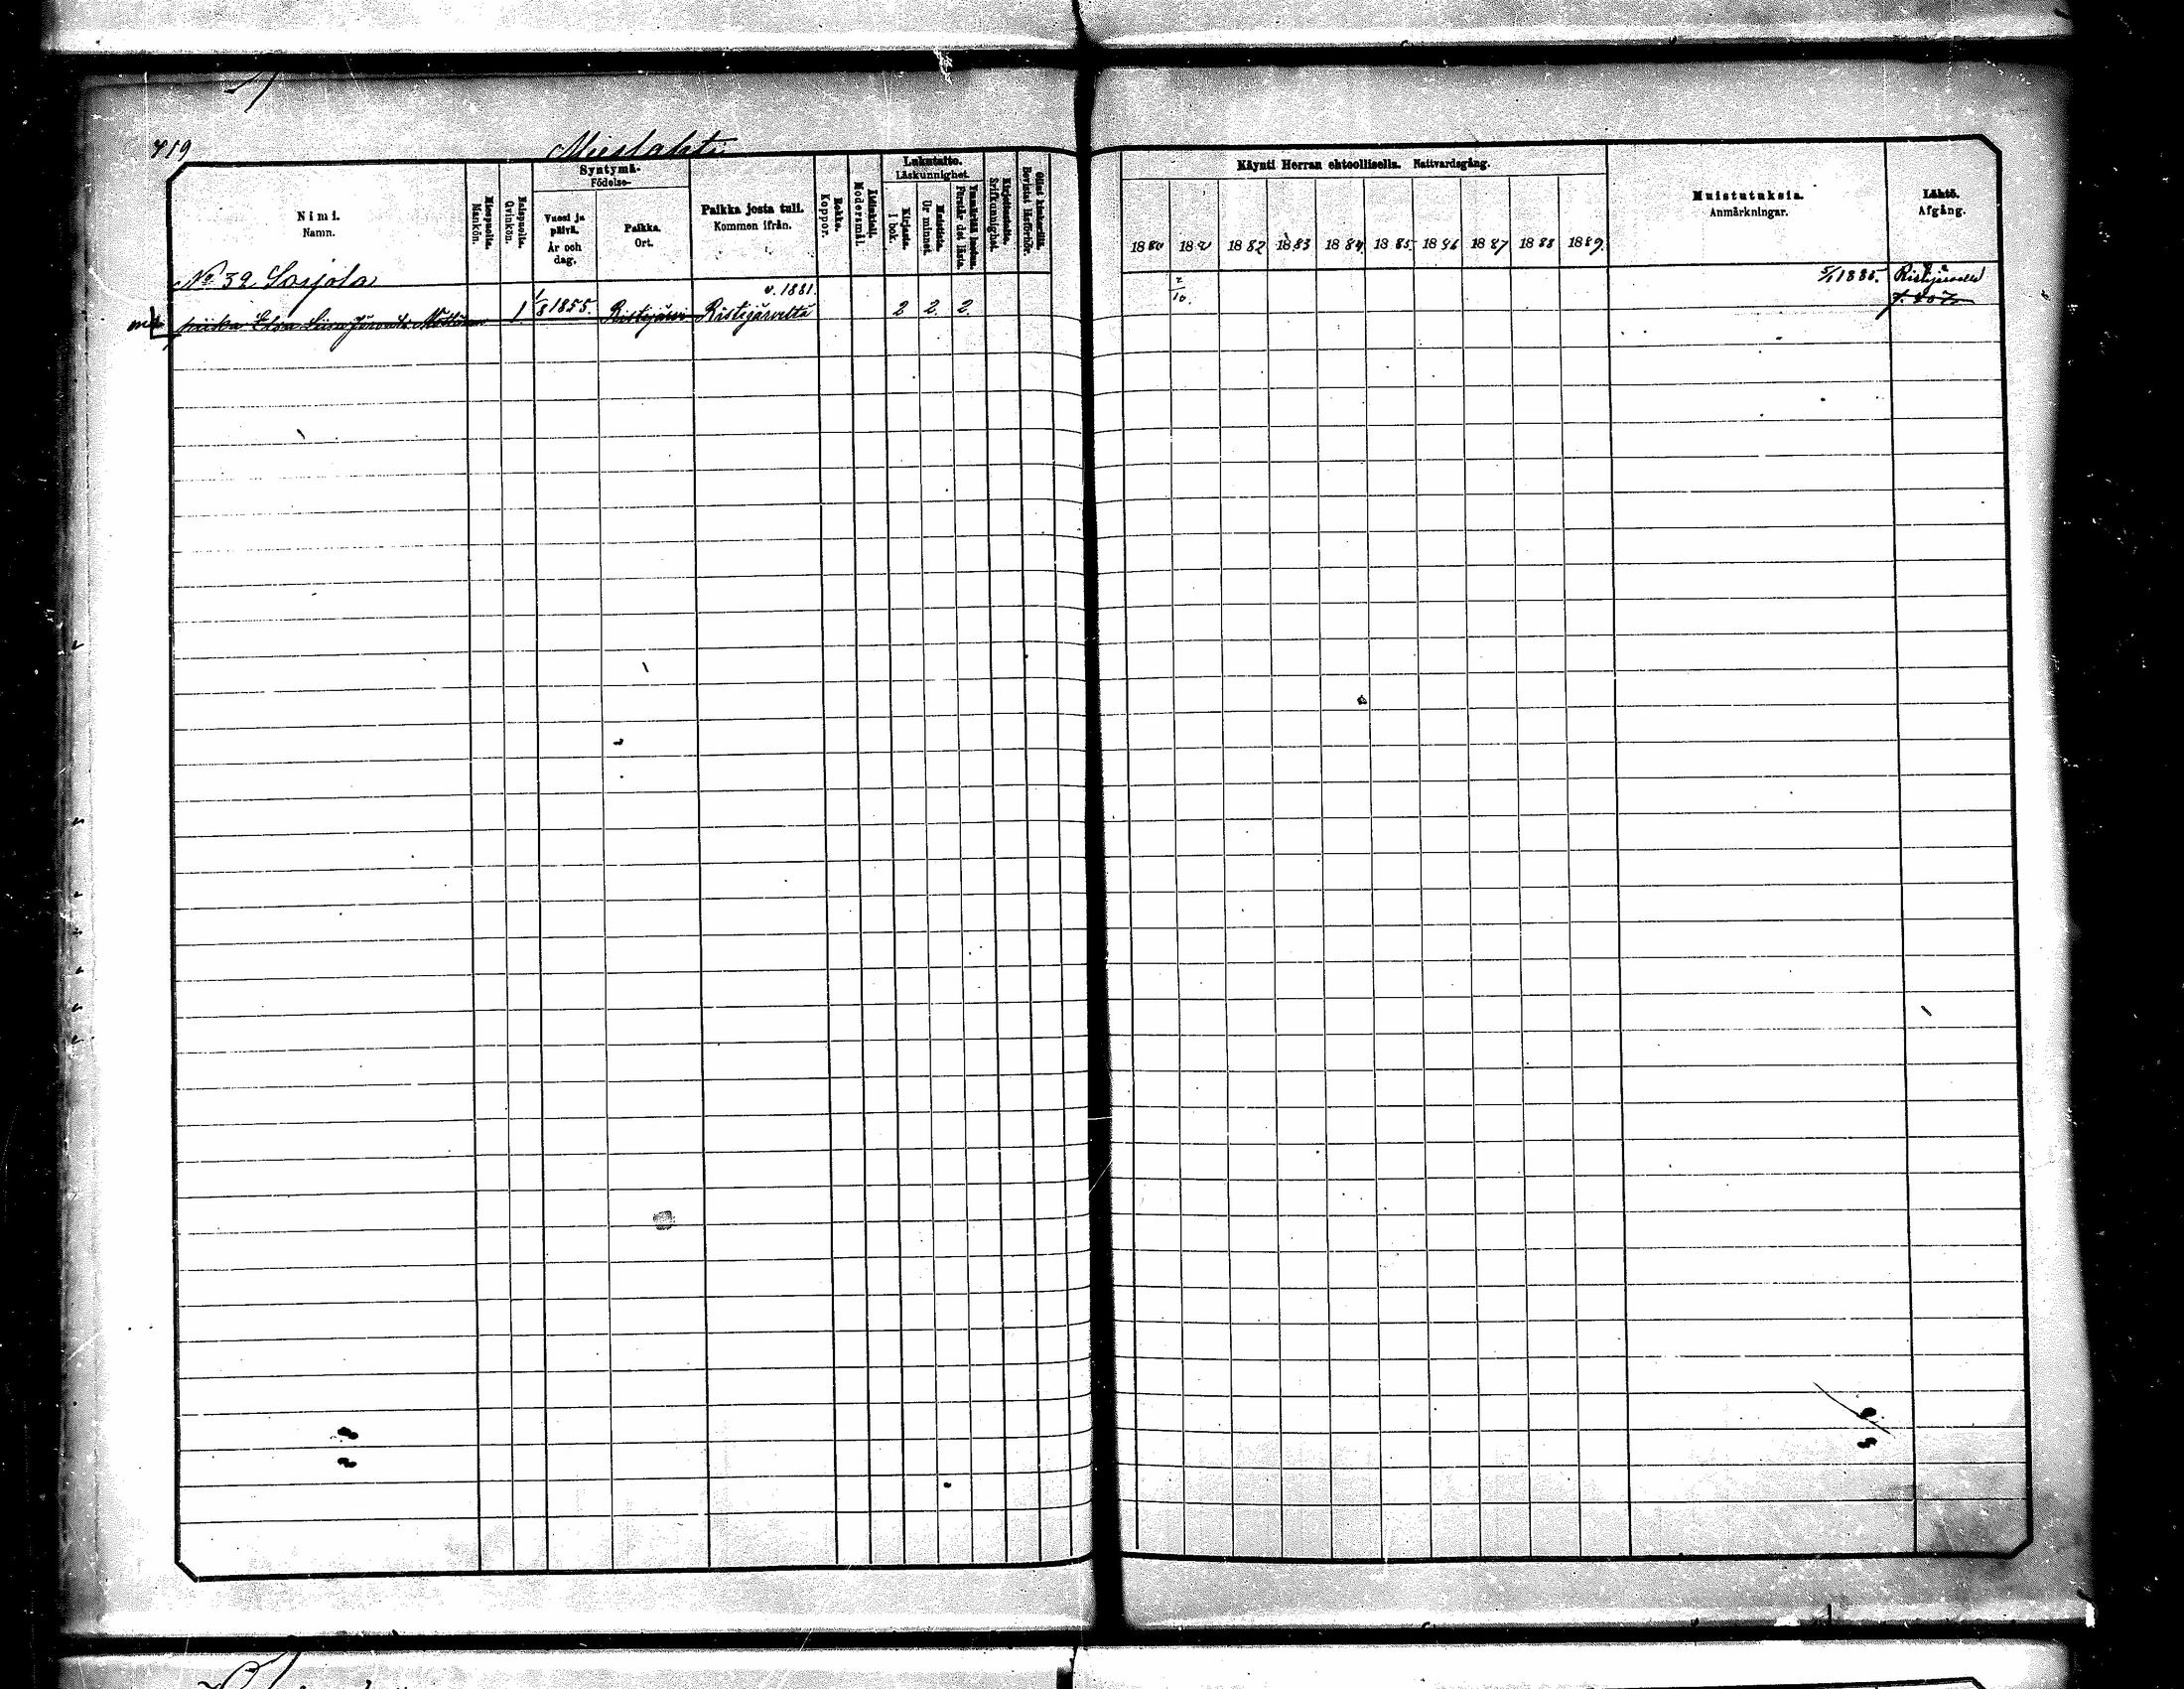 419
Mieslahti
Nimi.
Namn.
Miespuolia.
Mankön.
Naispuolia.
Qvinkön.
Syntymä-
Födelse-
Vuosi ja
päivä.
År och
dag.
Paikka.
Ort.
Paikka josta tuli.
Kommen ifrån.
Rokko.
Koppor.
Äidinkieli.
Modersmål.
Lukutaito.
Läskunnighet.
Kirjasta.
I bok.
Muistista.
Ur minnet.
Ymmärtää luetun.
Förstår det lästa.
Kirjoitustaito.
Skrifkunnighet.
Käynti Herran ehtoollisella. Nattvardsgång.
1880 1881 1882 1883 1884 1885 1886 1887 1888 1889
Muistutuksia.
Anmärkningar.
Lähtö.
Afgång.
No 39 Sarjola
v. 1881.
2/10.
5/1 1885. Ristijärvelle
piika Elsa Liisa 1 1/8 1855. Ristijärvi Ristijärveltä 2 2. 2.